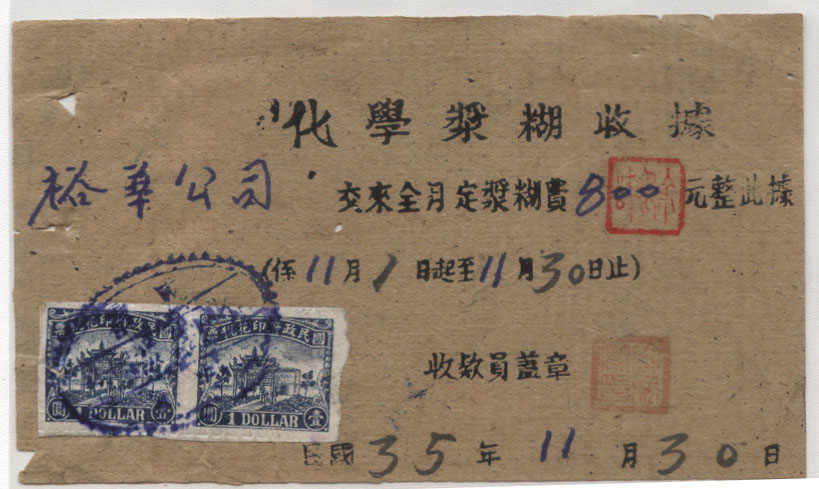 化學漿糊收據
裕華公司 交來全月定漿糊費800元整此據
(係11月1日起至11月30日止)
收欵員蓋章
民國35年11月30日
國民政府印花稅票
壹圓
1 DOLLAR
國民政府印花稅票
壹圓
1 DOLLAR